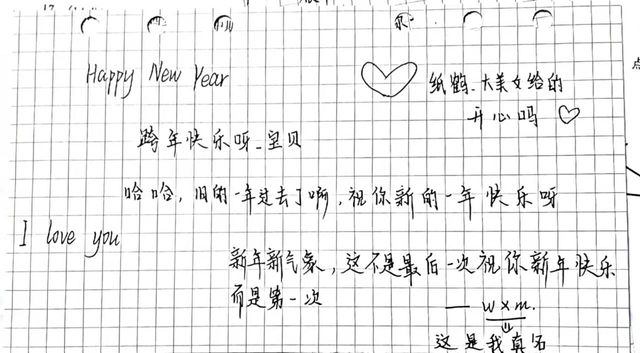 Happy New Year
纸鹤、大美女给的
开心吗
跨年快乐呀、宝贝
哈哈，旧的一年过去了啊，祝你新的一年快乐呀
I love you
新年新气象，这不是最后一次祝你新年快乐
而是第一次
— wxm.
这是我真名